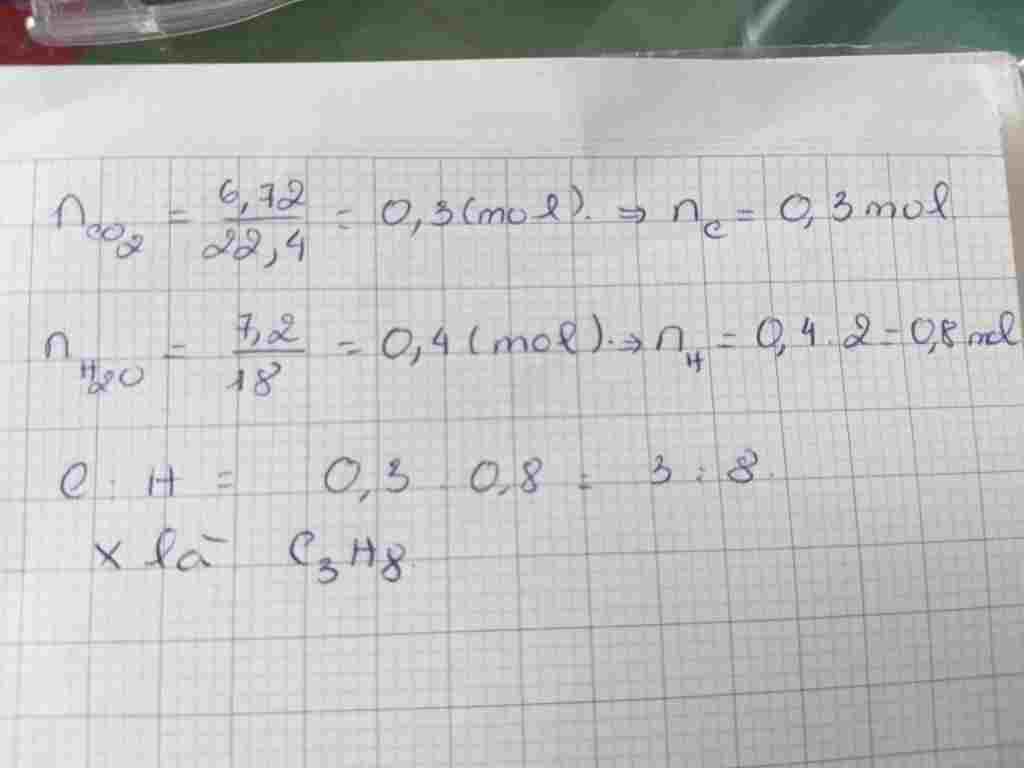 n_CO2 = 6,72/22,4 = 0,3 (mol). ⇒ n_C = 0,3 mol
n_H2O = 7,2/18 = 0,4 (mol). → n_H = 0,4 . 2 = 0,8 mol
C : H = 0,3 : 0,8 = 3 : 8.
X là C3H8.